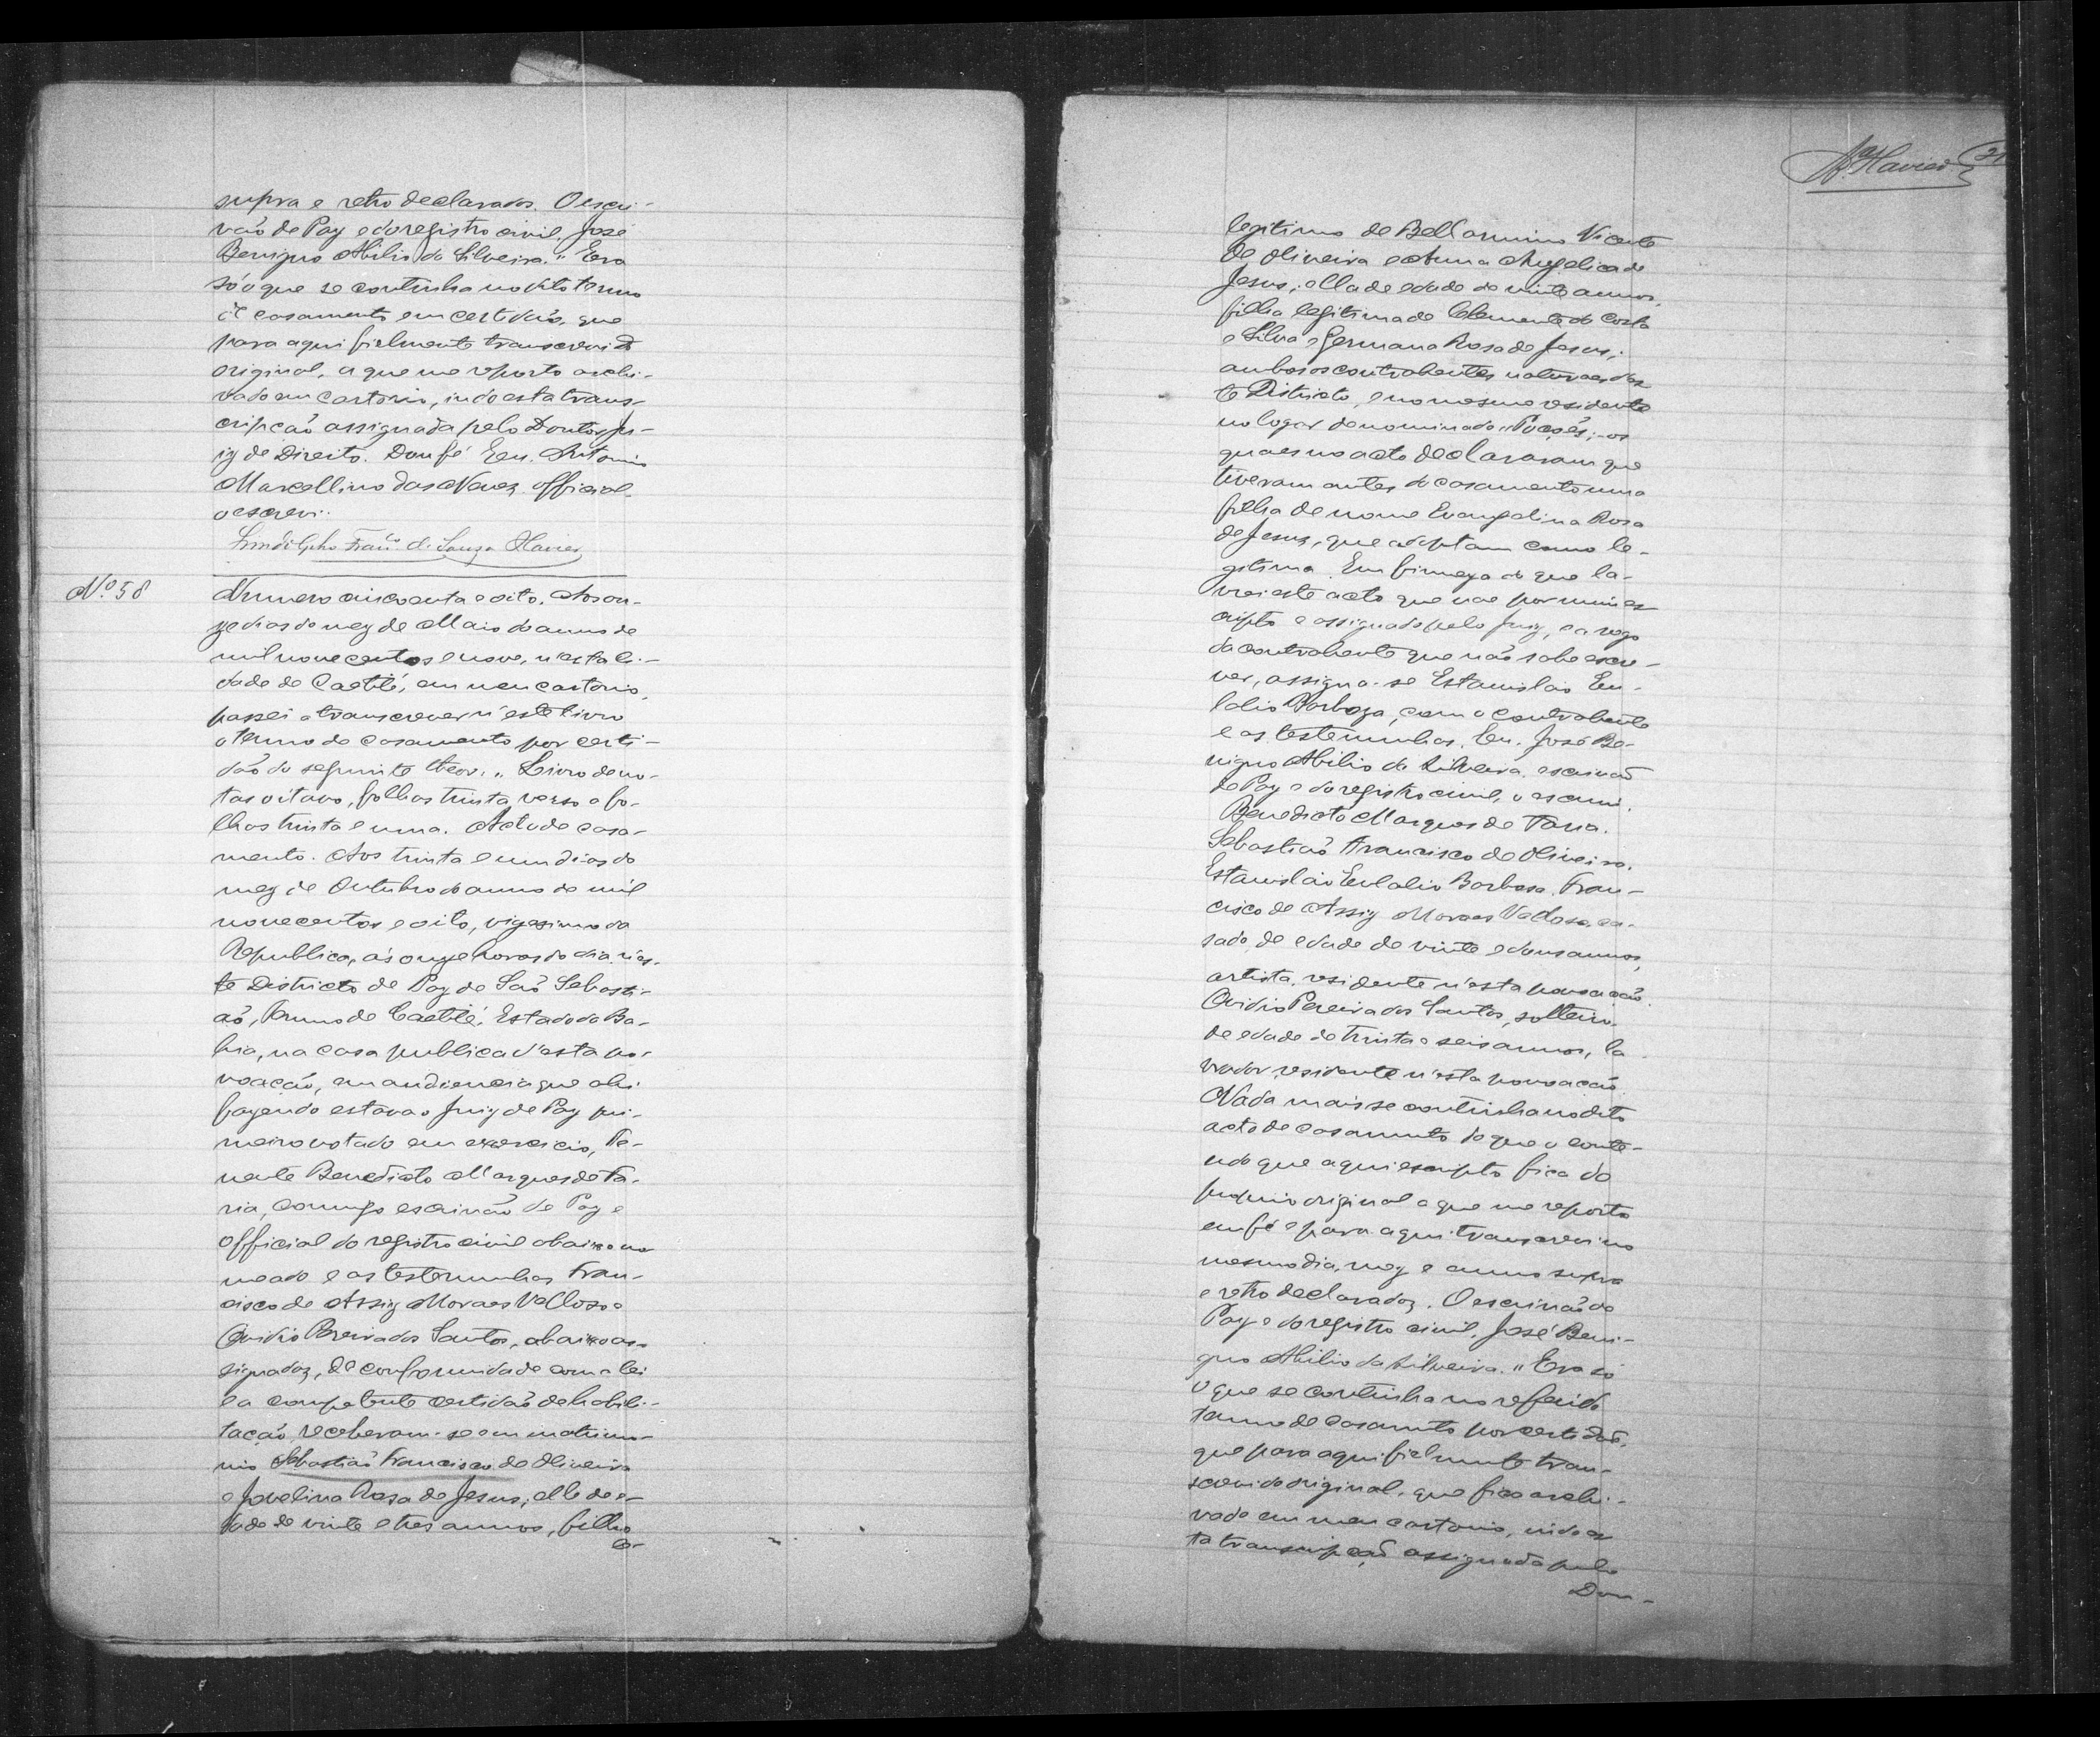 supra e retro declarados. O escri-
vão de Paz e do registro civil, José
Benigno Abilio da Silveira." Era
só o que se continha no dito termo
de casamento em certidão, que
para aqui fielmente transcrevi do
original, a que me reporto archi-
vado em cartorio, indo esta trans-
cripção assignada pelo Doutor Ju-
iz de Direito. Dou fé Eu. Antonio
Marcellino das Neves official,
o escrevi.
Lindolpho Franco de Souza Xavier
Nº 58
Numero cincoenta e oito. Aos on-
ze dias do mez de Maio do anno de
mil nove centos e nove, n'esta ci-
dade de Caetité, em meu cartorio,
passei a transcrever n'este livro
o termo de casamento por certi-
dão do seguinte theor: "Livro de no-
tas oitavo, folhas trinta verso e fo-
lhas trinta e uma. Acto de casa-
mento. Aos trinta e um dias do
mez de Outubro do anno de mil
novecentos e oito, vigesimo da
Republica, ás onze horas do dia, n'es-
te Districto de Paz de São Sebasti-
ão, Termo de Caetité, Estado da Ba-
hia, na casa publica d'esta po-
voação, em audiencia que ahi
fazendo estava o Juiz de Paz pri-
meiro votado em exercicio, Te-
nente Benedicto Marques de Fa-
ria, comigo escrivão de Paz e
official do registro civil abaixo no-
meado e as testemunhas Fran-
cisco de Assiz Moraes Vellozo e
Ovidio Pereira dos Santos, abaixo as-
signados, de conformidade com a lei
e a competente certidão de habili-
tação, receberam-se em matrimo-
nio Sebastião Francisco de Oliveira
e Jovelina Rosa de Jesus; elle de e-
dade de vinte e tres annos, filho
legitimo de Bellarmino Vicente
de Oliveira e Anna Angelica de
Jesus; ella de edade de vinte annos,
filha legitima de Clemente da Costa
e Silva e Germana Rosa de Jesus;
ambos os contrahentes naturaes des-
te Districto, e no mesmo residente
no logar denominado "Poções; os
quaes no acto declararam que
tiveram antes do casamento uma
filha de nome Evangelina Rosa
de Jesus, que adoptam como le-
gitima. Em firmeza do que la-
vrei este acto que vae por mim es-
cripto e assignado pelo Juiz, e a rogo
da contrahente que não sabe escre-
ver, assigna-se Estanislao Eu-
lalio Barboza, com o contrahente
e as testemunhas. Eu. José Be-
nigno Abilio da Silveira, escrivão
de Paz e do registro civil, o escrevi.
Benedicto Marques de Faria.
Sebastião Francisco de Oliveira.
Estanislão Eulalio Barbosa. Fran-
cisco de Assiz Moraes Velloso, ca-
sado, de edade de vinte e dous annos,
artista, residente n'esta povoação.
Ovidio Pereira dos Santos, solteiro,
de edade de trinta e seis annos, la-
vrador, residente n'esta povoação
Nada mais se continha no dito
acto de casamento do que o conte-
udo que aqui escripto fica do
proprio original a que me reporto
em fé e para aqui transcrevi no
mesmo dia, mez e anno supra
e retro declarados. O escrivão de
Paz e do registro civil, José Beni-
gno Abilio da Silveira." Era só
o que se continha no referido
termo de casamento por certidão,
que para aqui fielmente tran-
screvi do original, que fica archi-
vado em meu cartorio, indo es-
ta transcripção assignada pelo
Dou-